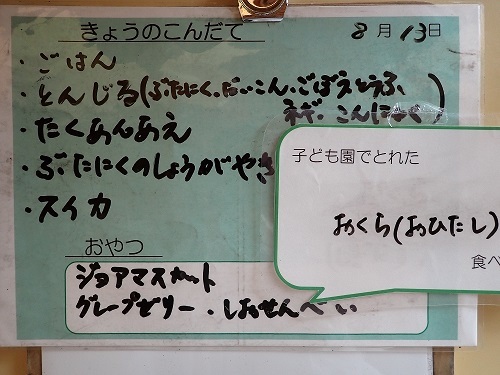 きょうのこんだて 8月13日
・ごはん
・とんじる(ぶたにく、だいこん、ごぼう、とうふ、
ネギ、こんにゃく)
・たくあんあえ
・ぶたにくのしょうがやき
・スイカ
おやつ
ジョアマスカット
グレープゼリー・しおせんべい
子ども園でとれた
おくら(おひたし)
食べ